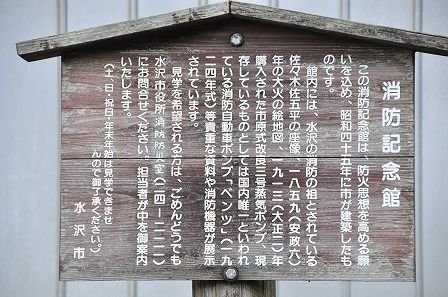 消防記念館
この消防記念館は、防火思想を高める願
いを込め、昭和四十五年に市が建築したも
のです。
館内には、水沢の消防の祖とされている
佐々木佐五平の座像、一八五九（安政六）
年の大火の絵地図、一九一三（大正二）年
購入された市原式改良三号蒸気ポンプ、現
存しているものとしては国内唯一といわれ
ている消防自動車ポンプ、「ベンツ」（一九
二四年式）等貴重な資料や消防機器が展示
されています。
見学を希望される方は、ごめんどうでも
水沢市役所消防防災室（二四ー二一一一）
にお問合せください。担当者が中を御案内
いたします。
（土、日・祝日・年末年始は見学できませ
んので御了承ください。）
水沢市